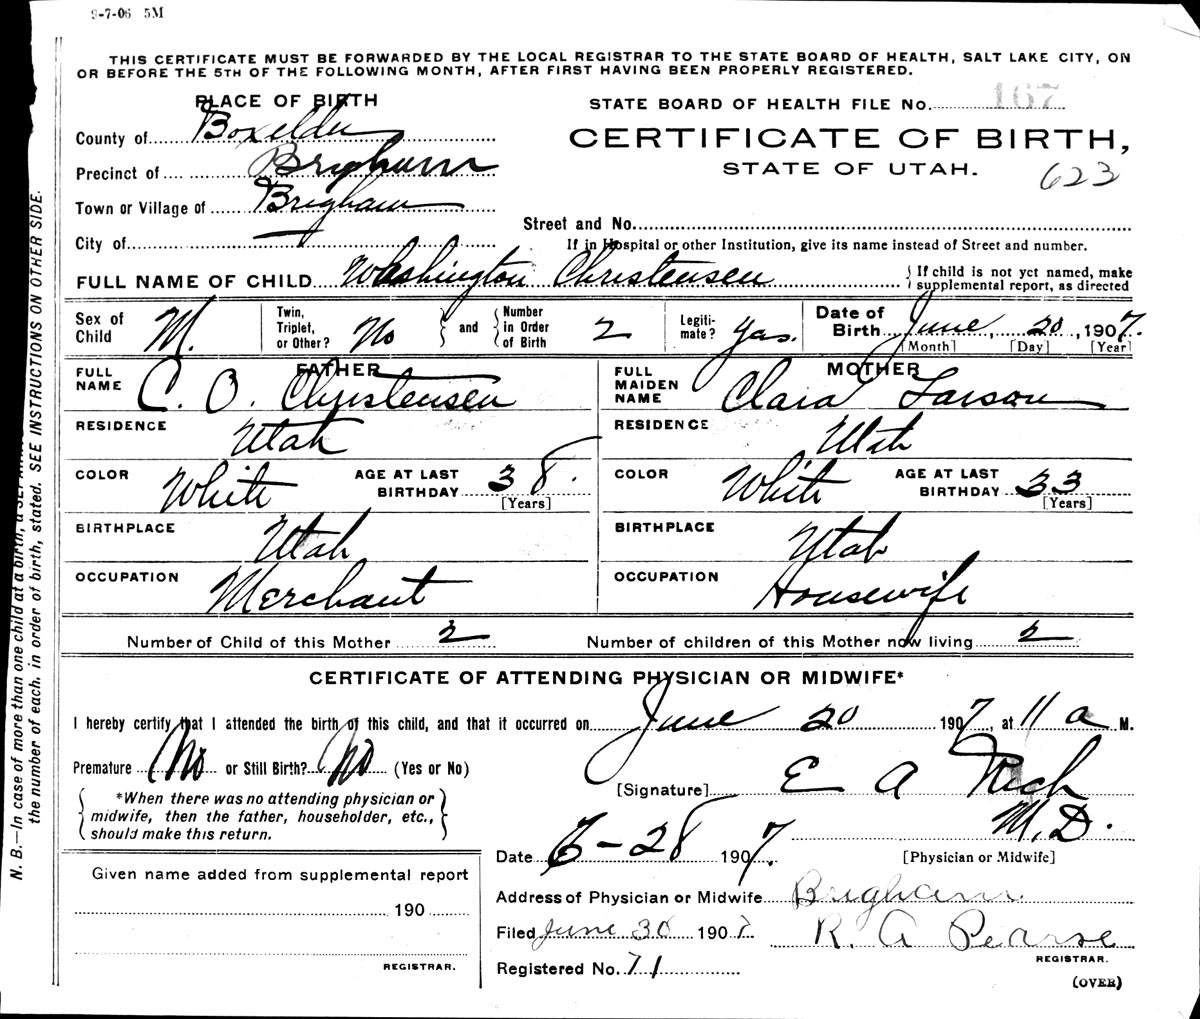 9-7-06 5M
THIS CERTIFICATE MUST BE FORWARDED BY THE LOCAL REGISTRAR TO THE STATE BOARD OF HEALTH, SALT LAKE CITY, ON
OR BEFORE THE 5TH OF THE FOLLOWING MONTH, AFTER FIRST HAVING BEEN PROPERLY REGISTERED.
PLACE OF BIRTH
STATE BOARD OF HEALTH FILE No. 167
County of Boxelder
CERTIFICATE OF BIRTH,
STATE OF UTAH.
623
Precinct of Brigham
Town or Village of Brigham
Street and No.
City of —
If in Hospital or other Institution, give its name instead of Street and number.
FULL NAME OF CHILD Washington Christensen { If child is not yet named, make
supplemental report, as directed
Sex of Child M. Twin, Triplet, or Other? No } and { Number in Order of Birth 2 Legiti-mate? Yas. Date of Birth June 20, 1907.
[Month] [Day] [Year]
FATHER
MOTHER
FULL NAME C. O. Christensen
FULL MAIDEN NAME Clara Larson
RESIDENCE Utah
RESIDENCE Utah
COLOR White AGE AT LAST BIRTHDAY 38. [Years]
COLOR White AGE AT LAST BIRTHDAY 33 [Years]
BIRTHPLACE Utah
BIRTHPLACE Utah
OCCUPATION Merchant
OCCUPATION Housewife
Number of Child of this Mother 2 Number of children of this Mother now living 2
CERTIFICATE OF ATTENDING PHYSICIAN OR MIDWIFE*
I hereby certify that I attended the birth of this child, and that it occurred on June 20 1907, at 11 a M.
Premature No or Still Birth? No (Yes or No)
[Signature] E A Rich
M.D.
[Physician or Midwife]
{ *When there was no attending physician or
midwife, then the father, householder, etc.,
should make this return. }
Date 6-28 1907.
Given name added from supplemental report
190
REGISTRAR.
Address of Physician or Midwife Brigham.
Filed June 30 1907. R. A Pearse
REGISTRAR.
Registered No. 71
(OVER)
N. B.—In case of more than one child at a birth, a
the number of each, in order of birth, stated. SEE INSTRUCTIONS ON OTHER SIDE.